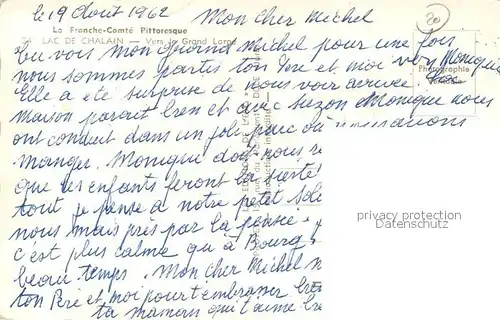 le 19 Août 1962 Mon cher Michel
La Franche-Comté Pittoresque
LAC DE CHALAIN — Vers le Grand Large
Tu vois mon grand Michel pour une fois
nous sommes partis ton Père et moi voir Monique
Elle a été surprise de nous voir arriver
Photographie
maison parait bien et avec Suzon Monique nous
ont conduit dans un joli parc où nous avons
manger. Monique doit nous
que les enfants feront la sieste
tout je pense à notre petit
nous mais près par la pensée
c'est plus calme qu'à Bourg
beau temps. Mon cher Michel
ton Père et moi pour t'embrasser
ta maman qui t'aime
privacy protection
Datenschutz